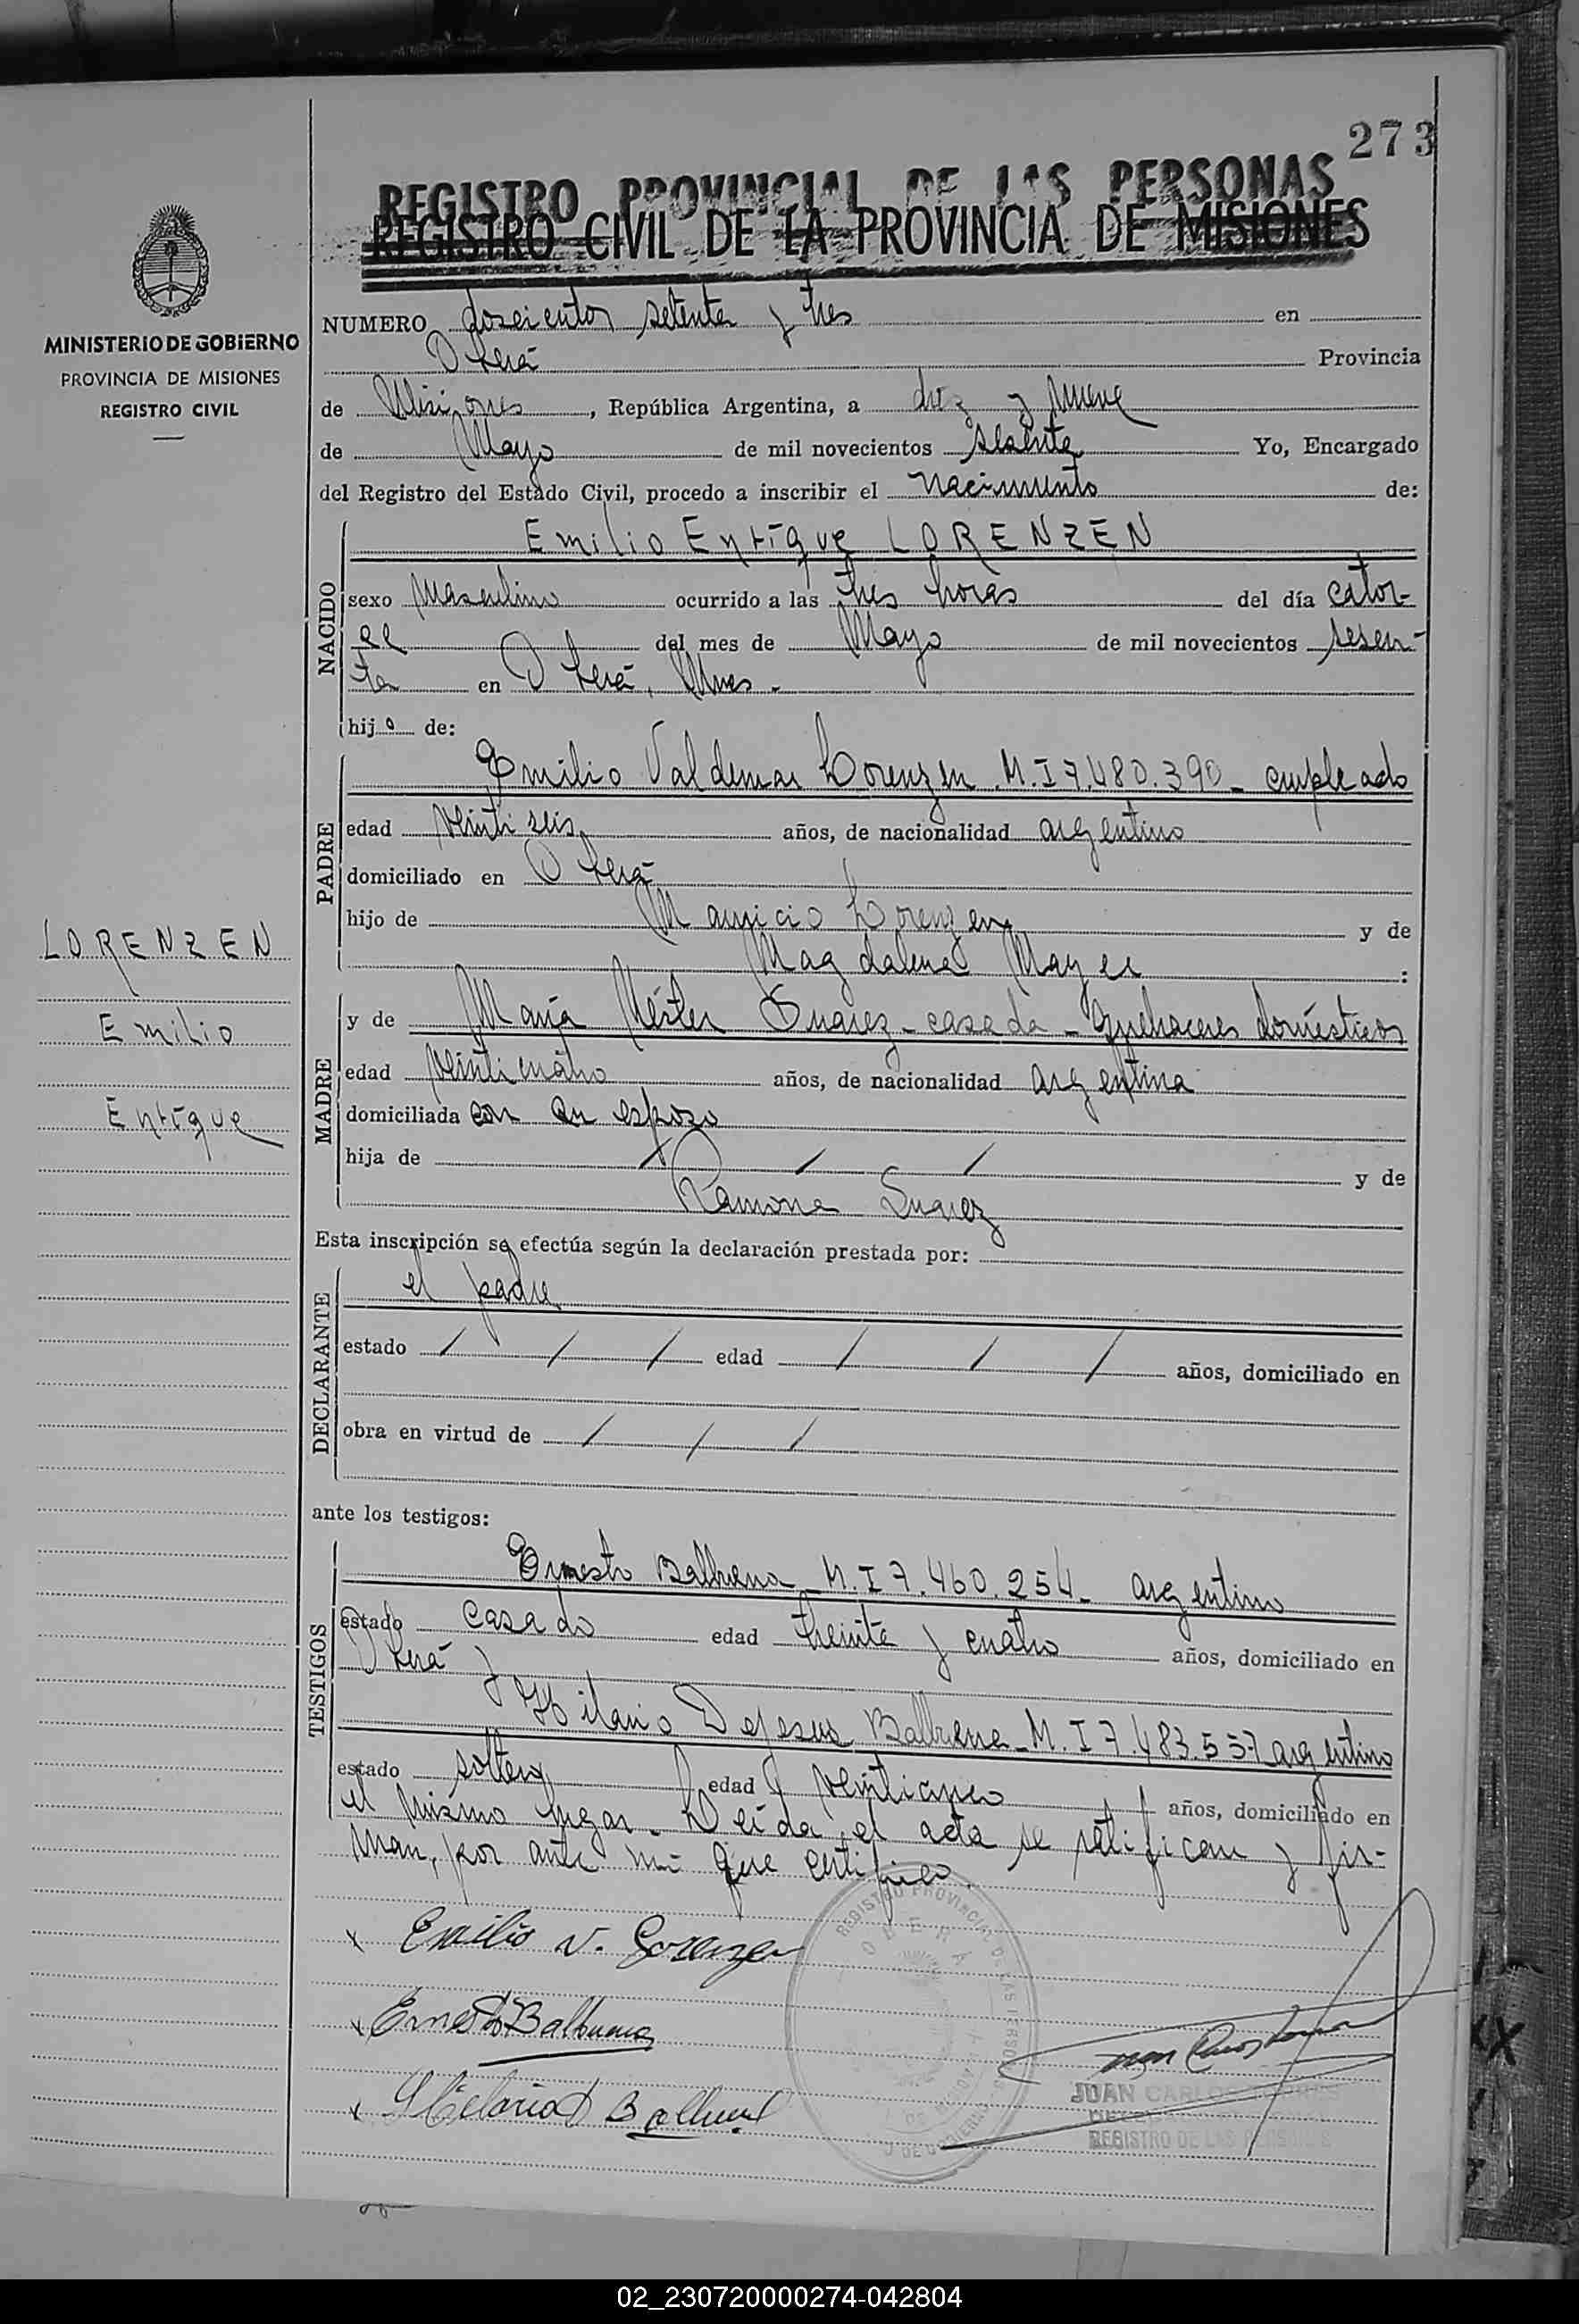 273
REGISTRO PROVINCIAL DE LAS PERSONAS
REGISTRO CIVIL DE LA PROVINCIA DE MISIONES
MINISTERIO DE GOBIERNO
PROVINCIA DE MISIONES
REGISTRO CIVIL
NUMERO doscientos setenta y tres en
Oberá Provincia
de Misiones, República Argentina, a diez y nueve
de Mayo de mil novecientos sesenta Yo, Encargado
del Registro del Estado Civil, procedo a inscribir el Nacimiento de:
NACIDO
Emilio Enrique LORENZEN
sexo Masculino ocurrido a las tres horas del día cator-
ce del mes de Mayo de mil novecientos sesen-
ta en Oberá, Mnes.-
hijo de:
PADRE
Emilio Valdemar Lorenzen. M.I 7.480.390_ empleado
edad veintiseis años, de nacionalidad argentino
domiciliado en Oberá
hijo de Mauricio Lorenzen y de
Magdalena Mayer :
LORENZEN
Emilio
Enrique
MADRE
y de María Néster Suarez - casada - Quehaceres domésticos
edad veinticuatro años, de nacionalidad argentina
domiciliada con su esposo
hija de / / / y de
Ramona Suarez
Esta inscripción se efectúa según la declaración prestada por:
DECLARANTE
el padre
estado / / / edad / / / años, domiciliado en
obra en virtud de / / /
ante los testigos:
TESTIGOS
Ernesto Balbuena_ M.I 7.460.254_ argentino
estado casado edad treinta y cuatro años, domiciliado en
Oberá y
Hilario Dejesus Balbuena_ M.I 7.483.537 argentino
estado soltero edad veinticinco años, domiciliado en
el mismo lugar. Leída el acta se ratifican y fir-
man, por ante mí que certifico.
x Emilio V. Lorenzen
x Ernesto Balbuena
x Hilario D Balbuena
REGISTRO PROVINCIAL DE LAS PERSONAS
OBERÁ
JUAN CARLOS TORRES
REGISTRO DE LAS PERSONAS
02_230720000274-042804